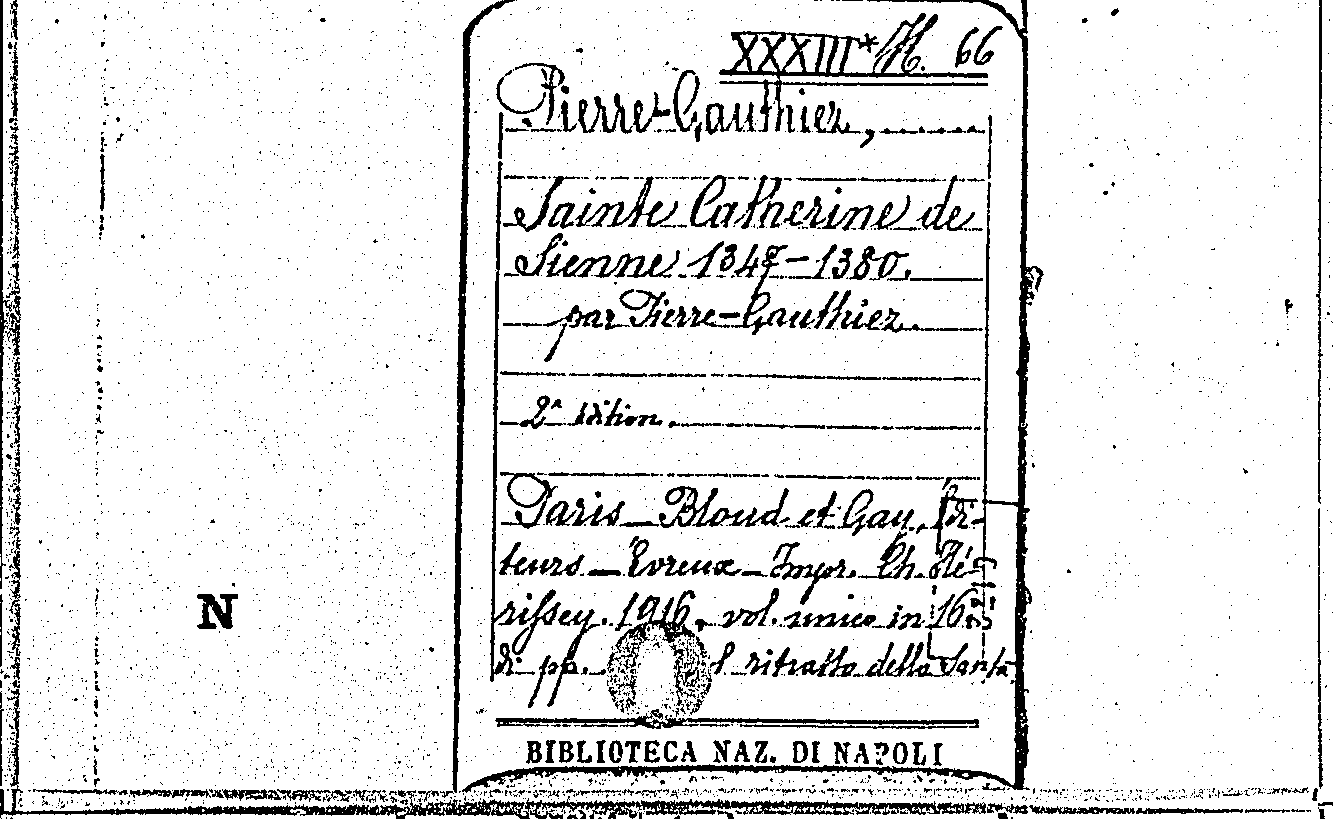 XXXIII* H. 66
Pierre-Gauthiez,......
Sainte Catherine de
Sienne 1347-1380.
par Pierre-Gauthiez.
2ª édition.
Paris_ Bloud et Gay, Édi-
teurs_ Évreux_ Impr. Ch. Hé-
rissey. 1916, vol. unico in 16:
di pp. l ritratto della Santa
N
BIBLIOTECA NAZ. DI NAPOLI